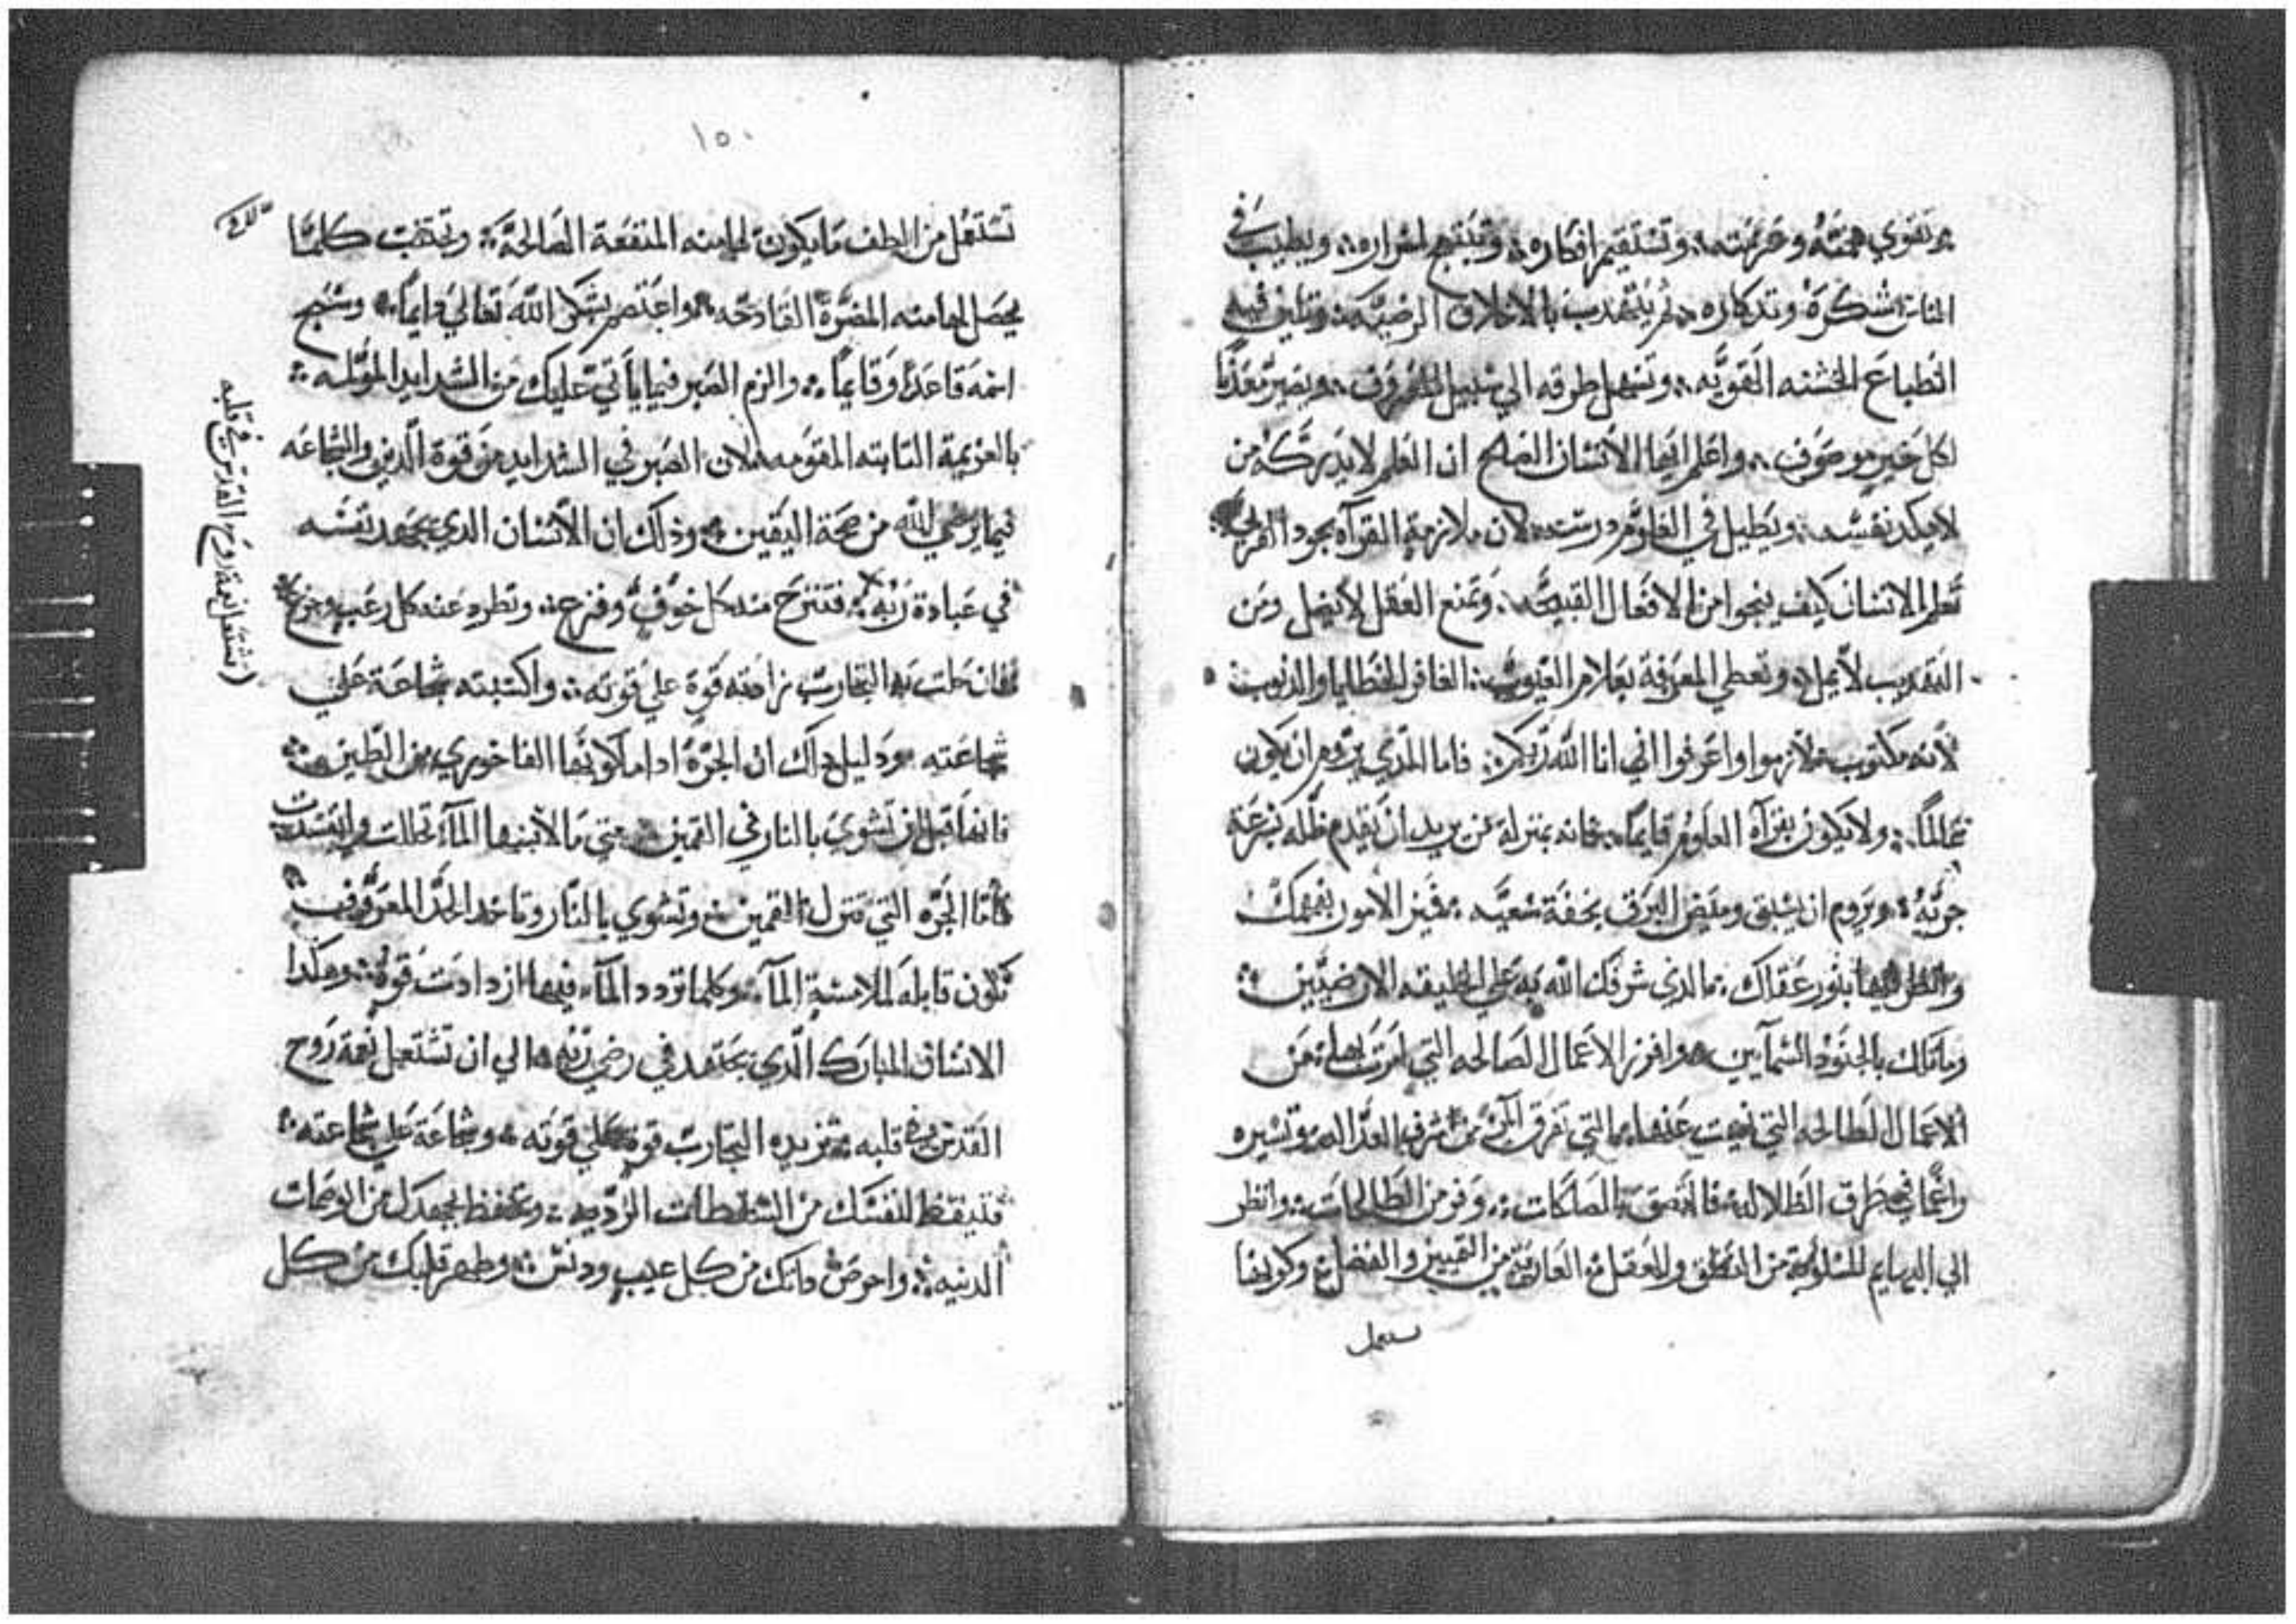 وتقوي همته وحرمته ؞ وتستقيم افكاره ؞ وتبتهج اسراره ؞ ويطيب في
الناس شكره وتدكاره ؞ ثم يتهدب بالاخلاق الرضيه ؞ وتليف فيه
الطباع الخشنه القويه ؞ وتسهل طرقه الي سبيل المعروف ؞ ويصير معدنا
لكل خير موصوف ؞ واعلم ايها الانسان الصلح ان العلم لا يدركه من
لا يكد نفسه ؞ ويطيل في العلوم درسه ؞ لان ملازمة القرآه بجود القريحه
تعلم الانسان كيف ينجوا من الافعال القبيحه ؞ وتمنع العقل لا يضل ومن
التهديب لا يمل ؞ وتعطي المعرفة بعلام الغيوب ؞ الغافر الخطايا والدنوب
لانه مكتوب ؞ لازموا واعرفوا اني انا الله ربكم ؞ فاما الدي يروم ان يكون
عالمًا ؞ ولا يكون بقرآه العلوم قايمًا ؞ فانه بمنزلة من يريد ان يقدم ظله بسرعة
جريه ؞ ويروم ان يسبق وميض البرق بخفة سعيه ؞ فميز الامور بفهمك
وانظر اليها بنور عقلك ؞ الدي شرفك الله به علي الخليقه الارضيين ؞
وماتلك بالجنود السمآيين ؞ وافرز الاعمال الصالحه التي امرت بها ؞ من
الاعمال الطالحه التي نهيت عنها ؞ التي تفرق المرء من شرف العداله ؞ وتسيره
واعمي في طرق الظلاله ؞ فالتصق بالصالحات ؞ وفر من الطالحات ؞ وانظر
الي البهايم المسلوبة من النطق والعقل ؞ العارية من التمييز والفضل ؞ وكونها
تستعمل
١٥٠
تستعمل من الطف ما يكون لها منه المنفعة الصالحة ؞ وتجتنب كلما
يحصل لها منه المضرة الفادحه ؞ واعتصم بشكر الله تعالي دايمًا ؞ وسبح
اسمه قاعدًا وقايمًا ؞ والزم الصبر فيما ياتي عليك من الشدايد المولمه ؞
بالعزيمة التابته المقومه ؞ لان الصبر في الشدايد من قوة الدين والشجاعه
فيما يرضي الله من صحة اليقين ؞ وذلك ان الانسان الدي يجهد نفسه
في عبادة ربه ؞ فتنزح منه كل خوف وفزع ؞ وتطرد عنه كل رعب وجزع
فان حلت به التجارب زادته قوة علي قوته ؞ واكسبته شجاعة علي
شجاعته ؞ ودليل داك ان الجرة ادا ما كونها الفاخوري من الطين ؞
فانها قبل ان تشوي بالنار في القمين ؞ متي ما لامسها المآء تحللت وانفسدت
فاما الجره التي تنزل القمين ؞ وتشوي بالنار وتاخد الحد المعروف ؞
تكون قابله لملامسة المآء ؞ وكلما تردد المآء فيها ازدادت قوه ؞ وهكدا
الانسان المبارك الدي يجتهد في رضي ربه ؞ الي ان تشتعل نعمة روح
القدس في قلبه ؞ تزيده التجارب قوة علي قوته ؞ وشجاعة علي شجاعته ؞
فتيقظ لنفسك من السقطات الرديه ؞ وتحفظ بجهدك من الوصمات
الدنيه ؞ واحرص داتك من كل عيب ودنس ؞ وطهر قلبك من كل
تشتعل نعمة روح القدس في قلبه